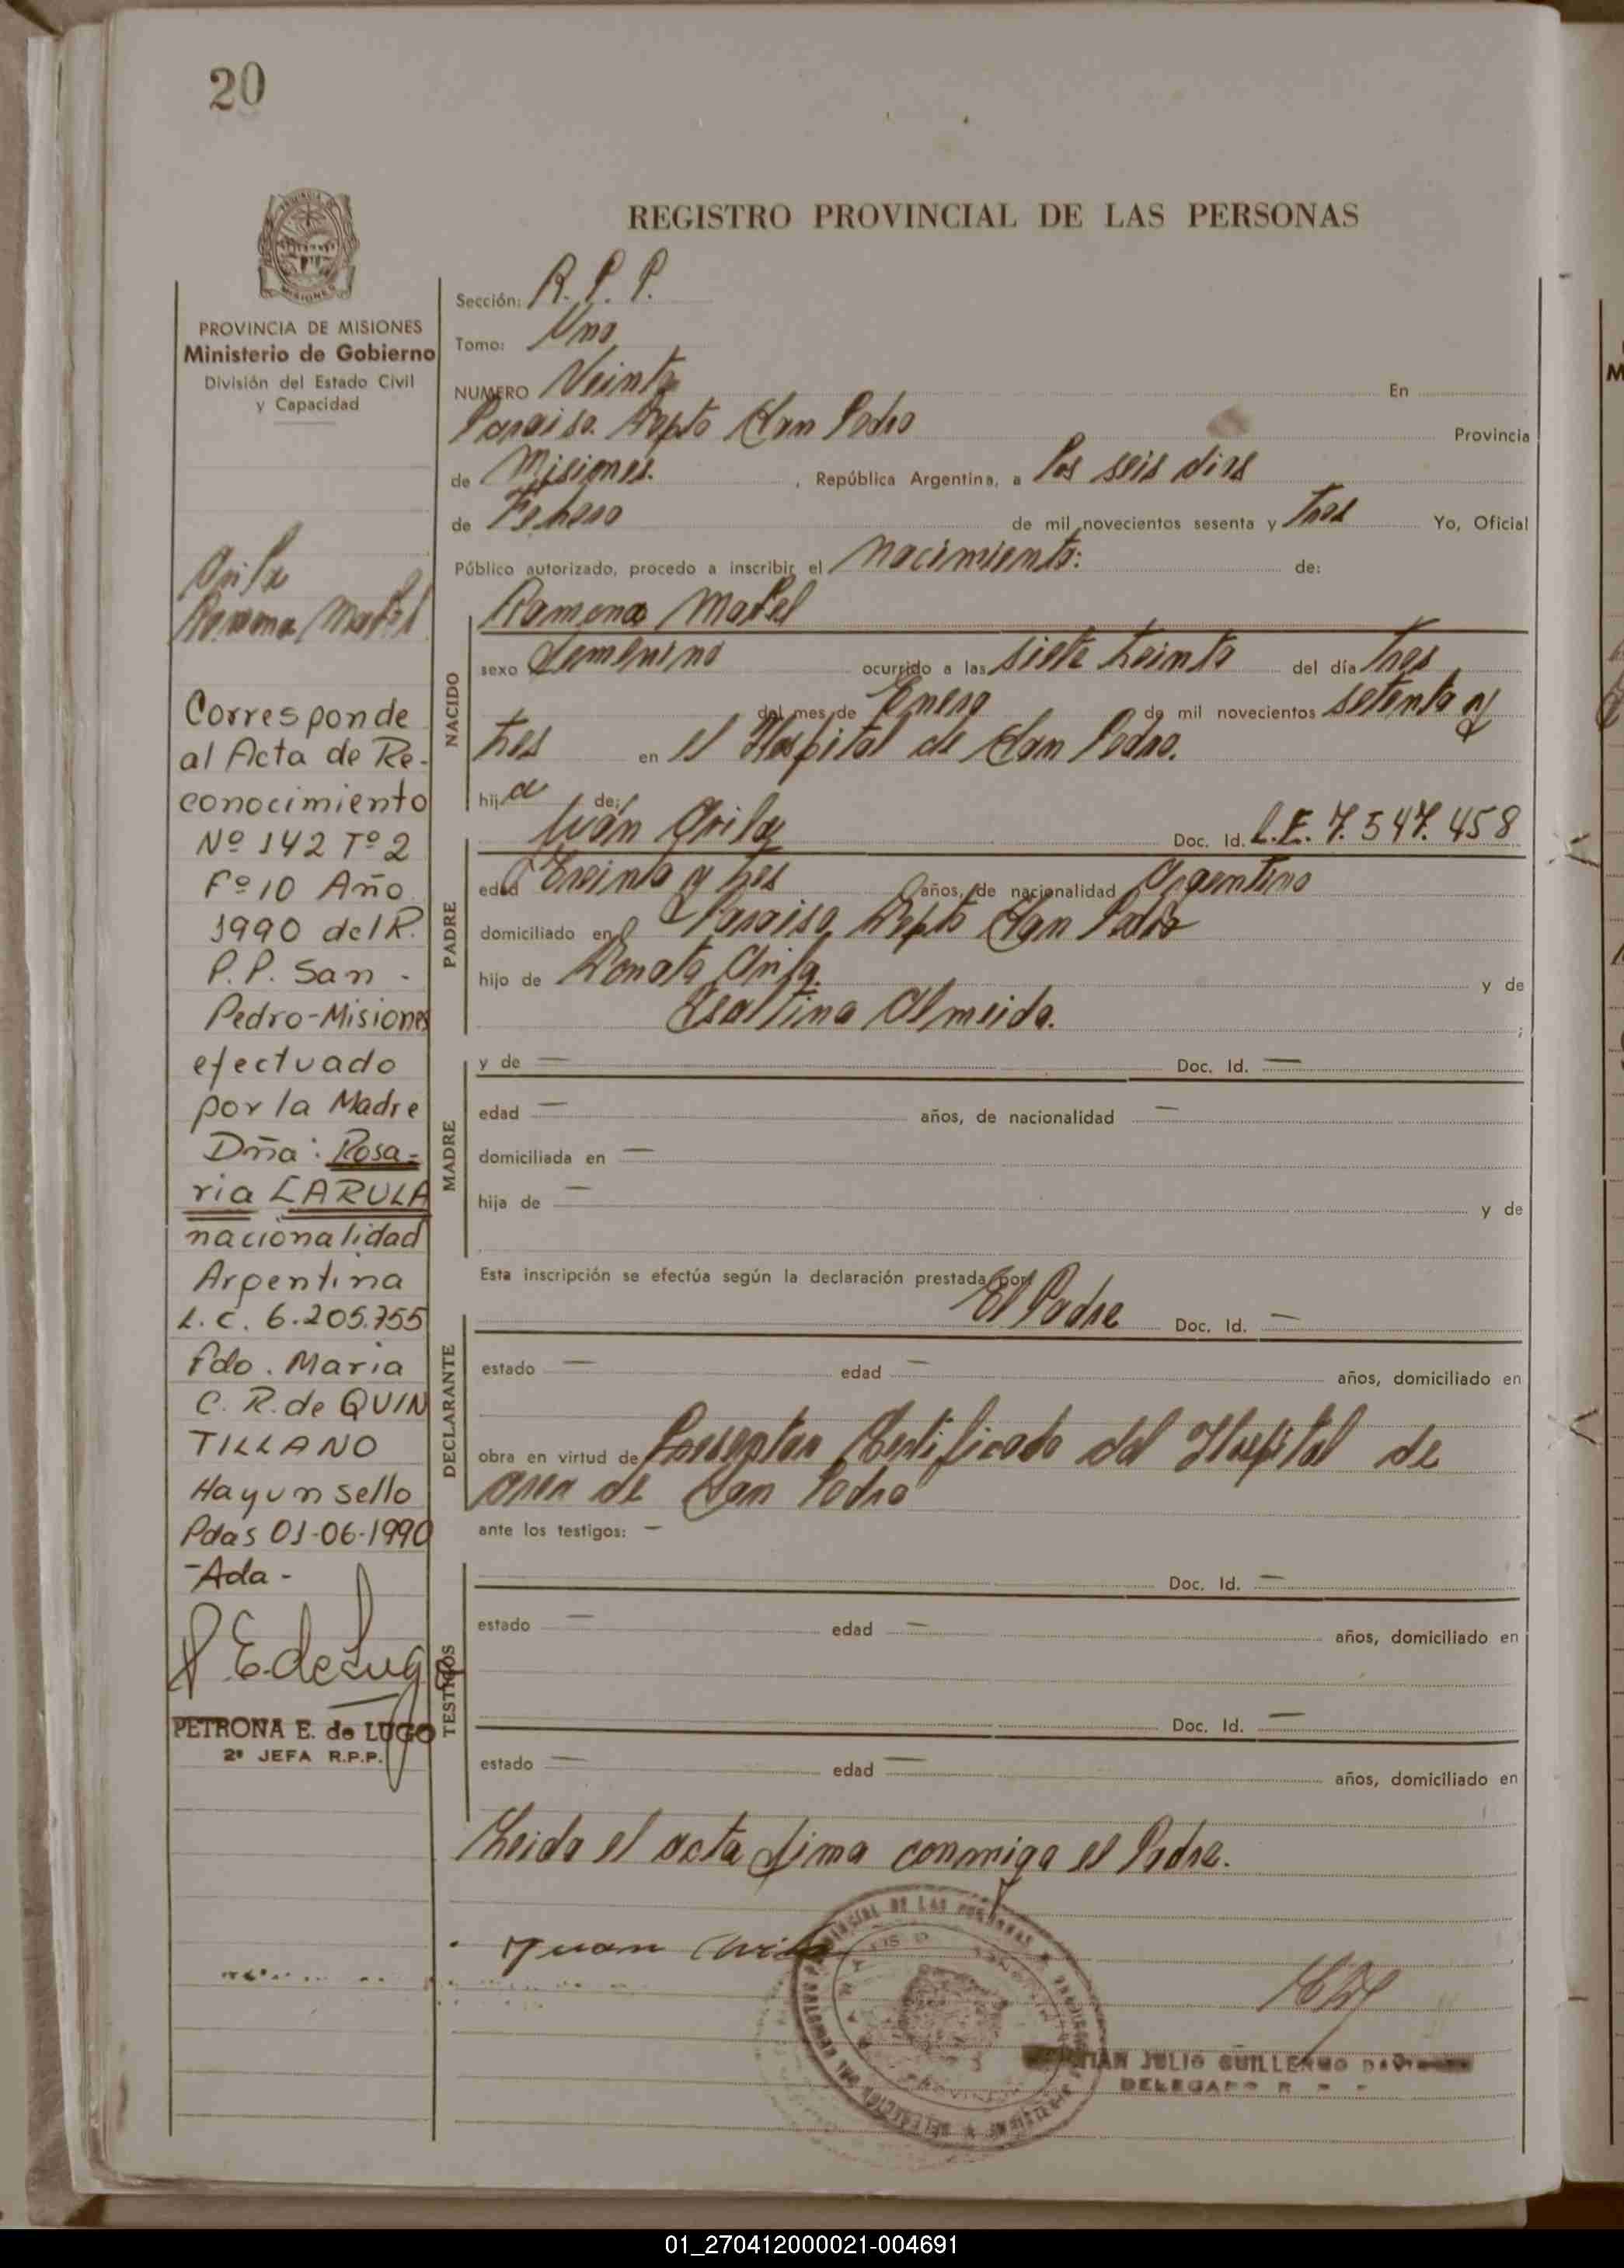 20
REGISTRO PROVINCIAL DE LAS PERSONAS
MISIONES
PROVINCIA DE MISIONES
Ministerio de Gobierno
División del Estado Civil
y Capacidad
Sección: R. P. P.
Tomo: Uno
NUMERO Veinte En
Paraiso. Depto San Pedro Provincia
de Misiones. , República Argentina, a los seis dias
de Febrero de mil novecientos sesenta y tres Yo, Oficial
Público autorizado, procedo a inscribir el nacimiento: de:
Ramona Mabel
Ramona Mabel
NACIDO
sexo femenino ocurrido a las siete treinta del día tres
del mes de Enero de mil novecientos setenta y
tres en el Hospital de San Pedro.
hija de:
PADRE
Juán Doc. Id. L.E. 7.547.458
edad Treinta y tres años, de nacionalidad Argentino
domiciliado en Paraiso Depto San Pedro
hijo de y de
Almeida.
;
MADRE
y de — Doc. Id. —
edad — años, de nacionalidad —
domiciliada en —
hija de — y de
Esta inscripción se efectúa según la declaración prestada por
DECLARANTE
El Padre Doc. Id. —
estado — edad — años, domiciliado en
obra en virtud de Presentar Certificado del Hospital de
area de San Pedro
ante los testigos: —
TESTIGOS
Doc. Id. —
estado — edad — años, domiciliado en
Doc. Id. —
estado — edad — años, domiciliado en
Leida el acta firma conmigo el Padre.
Juan
JULIO GUILLERMO
DELEGADO R
Corresponde
al Acta de Re-
conocimiento
Nº 142 Tº 2
Fº 10 Año
1990 del R.
P.P. San -
Pedro-Misiones
efectuado
por la Madre
Dña: Rosa=
ria LARULA
nacionalidad
Argentina
L.C. 6.205.755
Fdo. Maria
C. R. de QUIN
TILLANO
Hay un sello
Pdas 01-06-1990
-Ada-
P E. de Lugo
PETRONA E. de LUGO
2ª JEFA R.P.P.
01_270412000021-004691